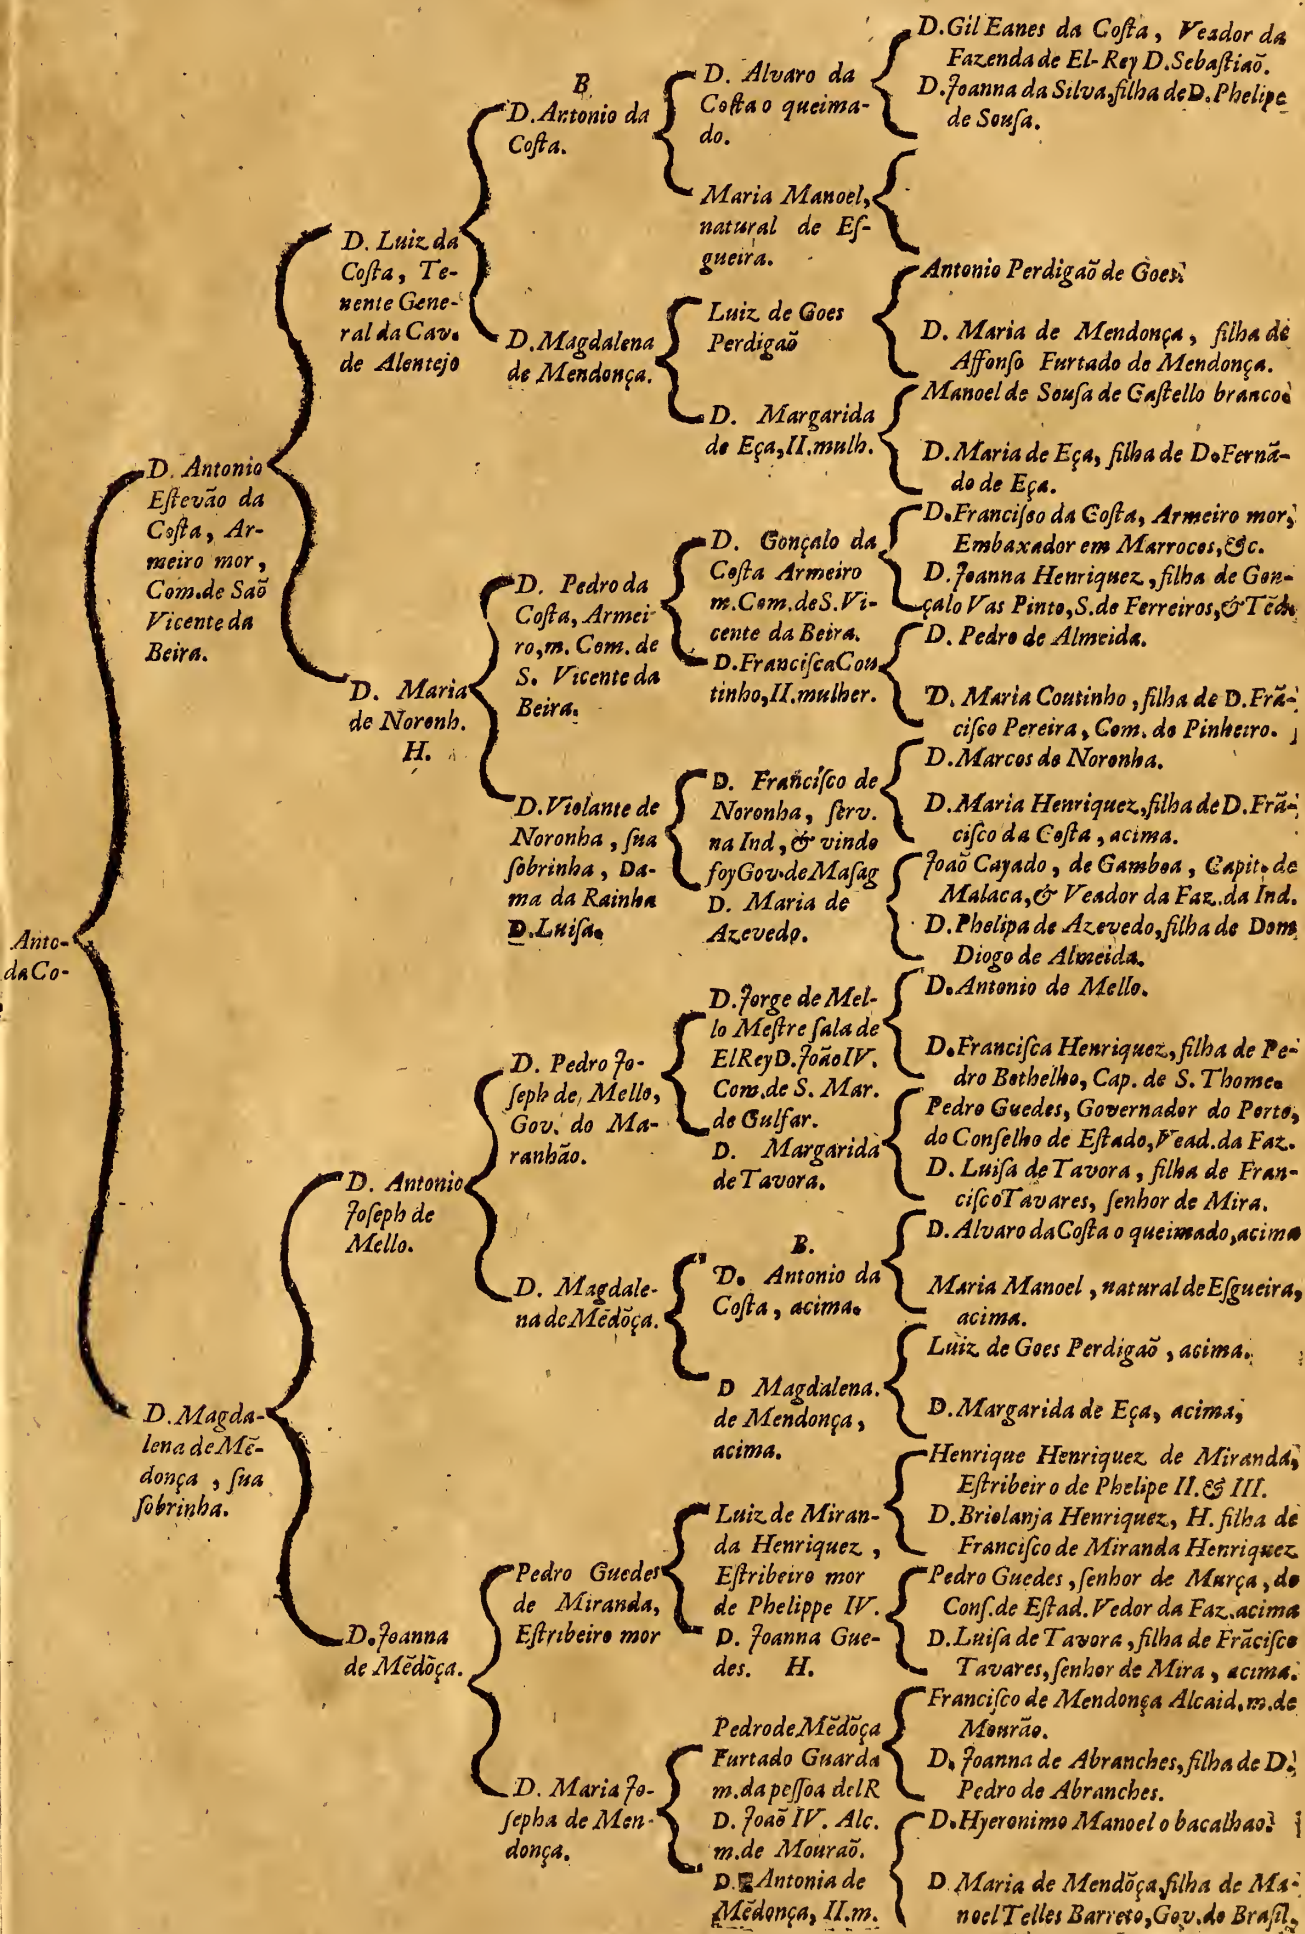 Anto-
da Co-
D. Antonio
Eſtevão da
Coſta, Ar-
meiro mor,
Com.de Saõ
Vicente da
Beira.
D. Magda-
lena de Mẽ-
donça, ſua
ſobrinha.
D. Luiz da
Coſta, Te-
nente Gene-
ral da Cav.
de Alentejo
D. Maria
de Noronh.
H.
D. Antonio
Joſeph de
Mello.
D. Joanna
de Mẽdõça.
B
D. Antonio da
Coſta.
D. Magdalena
de Mendonça.
D. Pedro da
Coſta, Armei-
ro,m. Com. de
S. Vicente da
Beira.
D. Violante de
Noronha, ſua
ſobrinha, Da-
ma da Rainha
D. Luiſa.
D. Pedro Jo-
ſeph de, Mello,
Gov. do Ma-
ranhão.
D. Magdale-
na de Mẽdõça.
Pedro Guedes
de Miranda,
Eſtribeiro mor
D. Maria Jo-
ſepha de Men-
donça.
D. Alvaro da
Coſta o queima-
do.
Maria Manoel,
natural de Eſ-
gueira.
Luiz de Goes
Perdigaõ
D. Margarida
de Eça, II. mulh.
D. Gonçalo da
Coſta Armeiro
m. Com. de S. Vi-
cente da Beira.
D. Franciſca Cou
tinho, II. mulher.
D. Franciſco de
Noronha, ſerv.
na Ind, & vindo
foy Gov. de Maſag
D. Maria de
Azevedo.
D. Jorge de Mel-
lo Meſtre ſala de
ElRey D. João IV.
Com. de S. Mar.
de Gulfar.
D. Margarida
de Tavora.
B.
D. Antonio da
Coſta, acima.
D Magdalena.
de Mendonça,
acima.
Luiz de Miran-
da Henriquez,
Eſtribeiro mor
de Phelippe IV.
D. Joanna Gue-
des. H.
Pedro de Mẽdõça
Furtado Guarda
m. da peſſoa del R
D. Joaõ IV. Alc.
m. de Mouraõ.
D. Antonia de
Mẽdonça, II. m.
D. Gil Eanes da Coſta, Veador da
Fazenda de El-Rey D. Sebaſtiaõ.
D. Joanna da Silva, filha de D. Phelipe
de Souſa.
Antonio Perdigaõ de Goes.
D. Maria de Mendonça, filha de
Affonſo Furtado de Mendonça.
Manoel de Souſa de Caſtello branco.
D. Maria de Eça, filha de D. Fernã-
do de Eça.
D. Franciſco da Coſta, Armeiro mor,
Embaxador em Marrocos, &c.
D. Joanna Henriquez, filha de Gon-
çalo Vas Pinto, S. de Ferreiros, & Tẽd.
D. Pedro de Almeida.
D. Maria Coutinho, filha de D. Frã-
ciſco Pereira, Com. do Pinheiro.
D. Marcos de Noronha.
D. Maria Henriquez, filha de D. Frã-
ciſco da Coſta, acima.
Joaõ Cayado, de Gamboa, Capit. de
Malaca, & Veador da Faz. da Ind.
D. Phelipa de Azevedo, filha de Dom
Diogo de Almeida.
D. Antonio de Mello.
D. Franciſca Henriquez, filha de Pe-
dro Bothelho, Cap. de S. Thome.
Pedro Guedes, Governador do Porto,
do Conſelho de Eſtado, Vead. da Faz.
D. Luiſa de Tavora, filha de Fran-
ciſco Tavares, ſenhor de Mira.
D. Alvaro da Coſta o queimado, acima
Maria Manoel, natural de Eſgueira,
acima.
Luiz de Goes Perdigaõ, acima.
D. Margarida de Eça, acima,
Henrique Henriquez de Miranda,
Eſtribeiro de Phelipe II. & III.
D. Briolanja Henriquez, H. filha de
Franciſco de Miranda Henriquez
Pedro Guedes, ſenhor de Murça, do
Conſ. de Eſtad. Vedor da Faz. acima
D. Luiſa de Tavora, filha de Frãciſco
Tavares, ſenhor de Mira, acima.
Franciſco de Mendonça Alcaid. m. de
Mourão.
D. Joanna de Abranches, filha de D.
Pedro de Abranches.
D. Hyeronimo Manoel o bacalhao.
D. Maria de Mendõça, filha de Ma-
noel Telles Barreto, Gov. do Braſil,